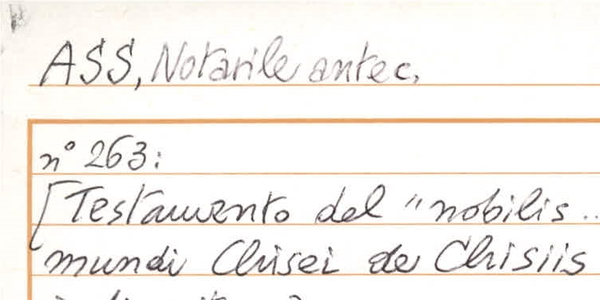 ASS, Notarile antec.
n° 263:
[Testamento del "nobilis ..
mundi Chisei de Chisiis